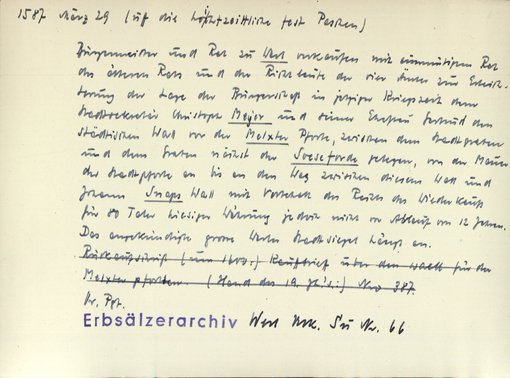 1587 März 29 (uf die hochzeittliche fest Paschen)
Bürgermeister und Rat zu Werl verkaufen mit einmütigem Rat
des älteren Rats und der Richtleute der vier Ämter zur Erleich-
terung der Lage der Bürgerschaft in jetziger Kriegszeit dem
Stadtsekretär Christoph Meyer und seiner Ehefrau Gertrud den
städtischen Wall vor der Melxter Pforte, zwischen dem Stadtgraben
und dem Graben nächst der Soesеforde gelegen, von der Mauer
der Stadtpforte an bis an den Weg zwischen diesem Wall und
Johann Snaps Wall mit Vorbehalt des Rechts des Wiederkaufs
für 80 Taler hiesiger Währung jedoch nicht vor Ablauf von 12 Jahren.
Das angekündigte grosse Werler Stadtsiegel hängt an.
Rückaufschrift (um 1600:) Kaufbrief über den wall für der
Melxter pforten. (Hand des 19. Jh.s:) Nro 387.
Or. Pgt.
Erbsälzerarchiv Werl Urk. Su Nr. 66